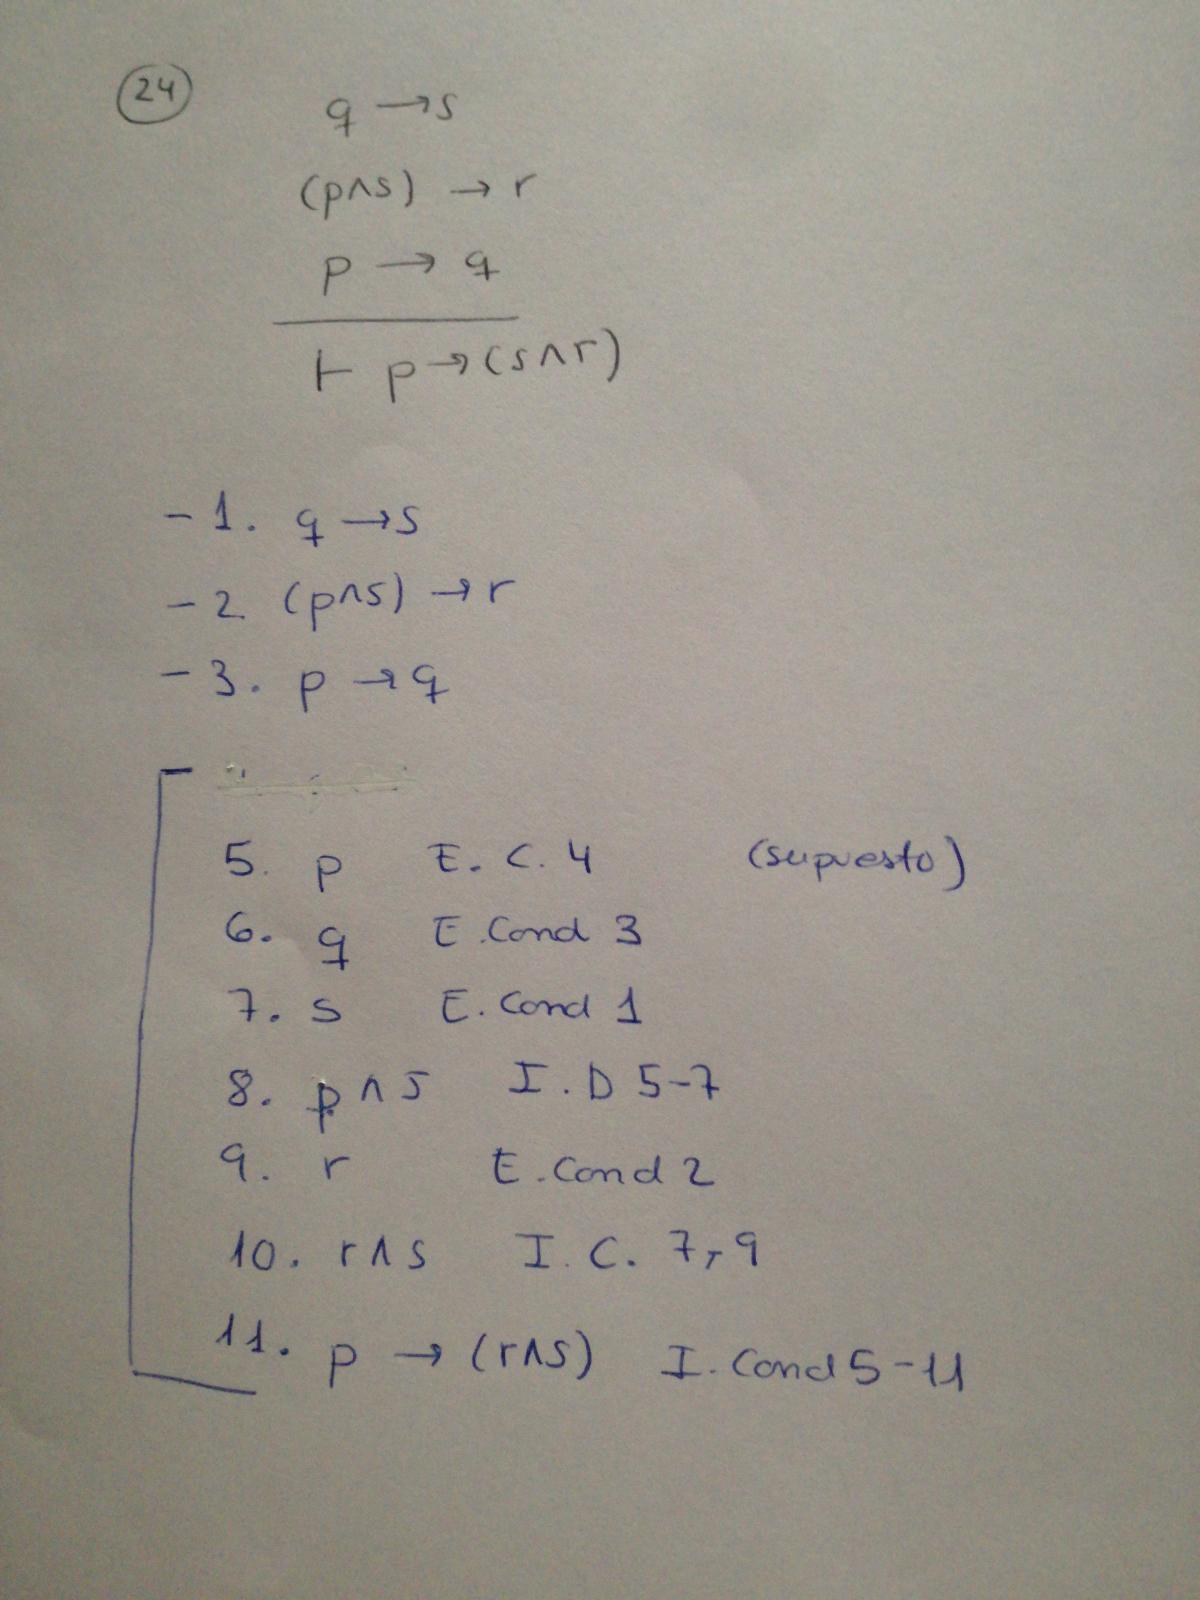 24
q → s
(p∧s) → r
p → q
⊢ p → (s∧r)
- 1. q → s
- 2 (p∧s) → r
- 3. p → q
5. p E. C. 4 (supuesto)
6. q E. Cond 3
7. s E. Cond 1
8. p∧s I. D 5-7
9. r E. Cond 2
10. r∧s I. C. 7, 9
11. p → (r∧s) I. Cond 5-11